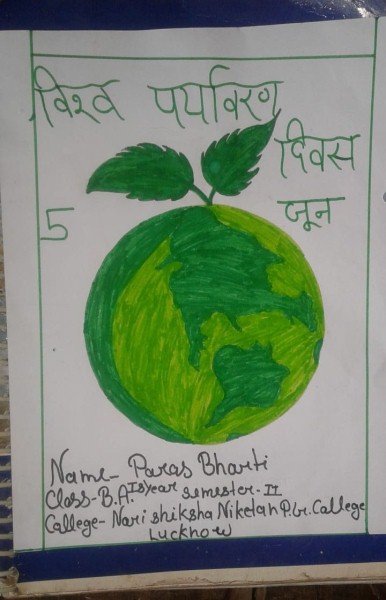 विश्व पर्यावरण
दिवस
5 जून
Name- Paras Bharti
Class- B.A Ist year semester-II
Callege- Nari shiksha Niketan P.Gr. Callege
Lucknow